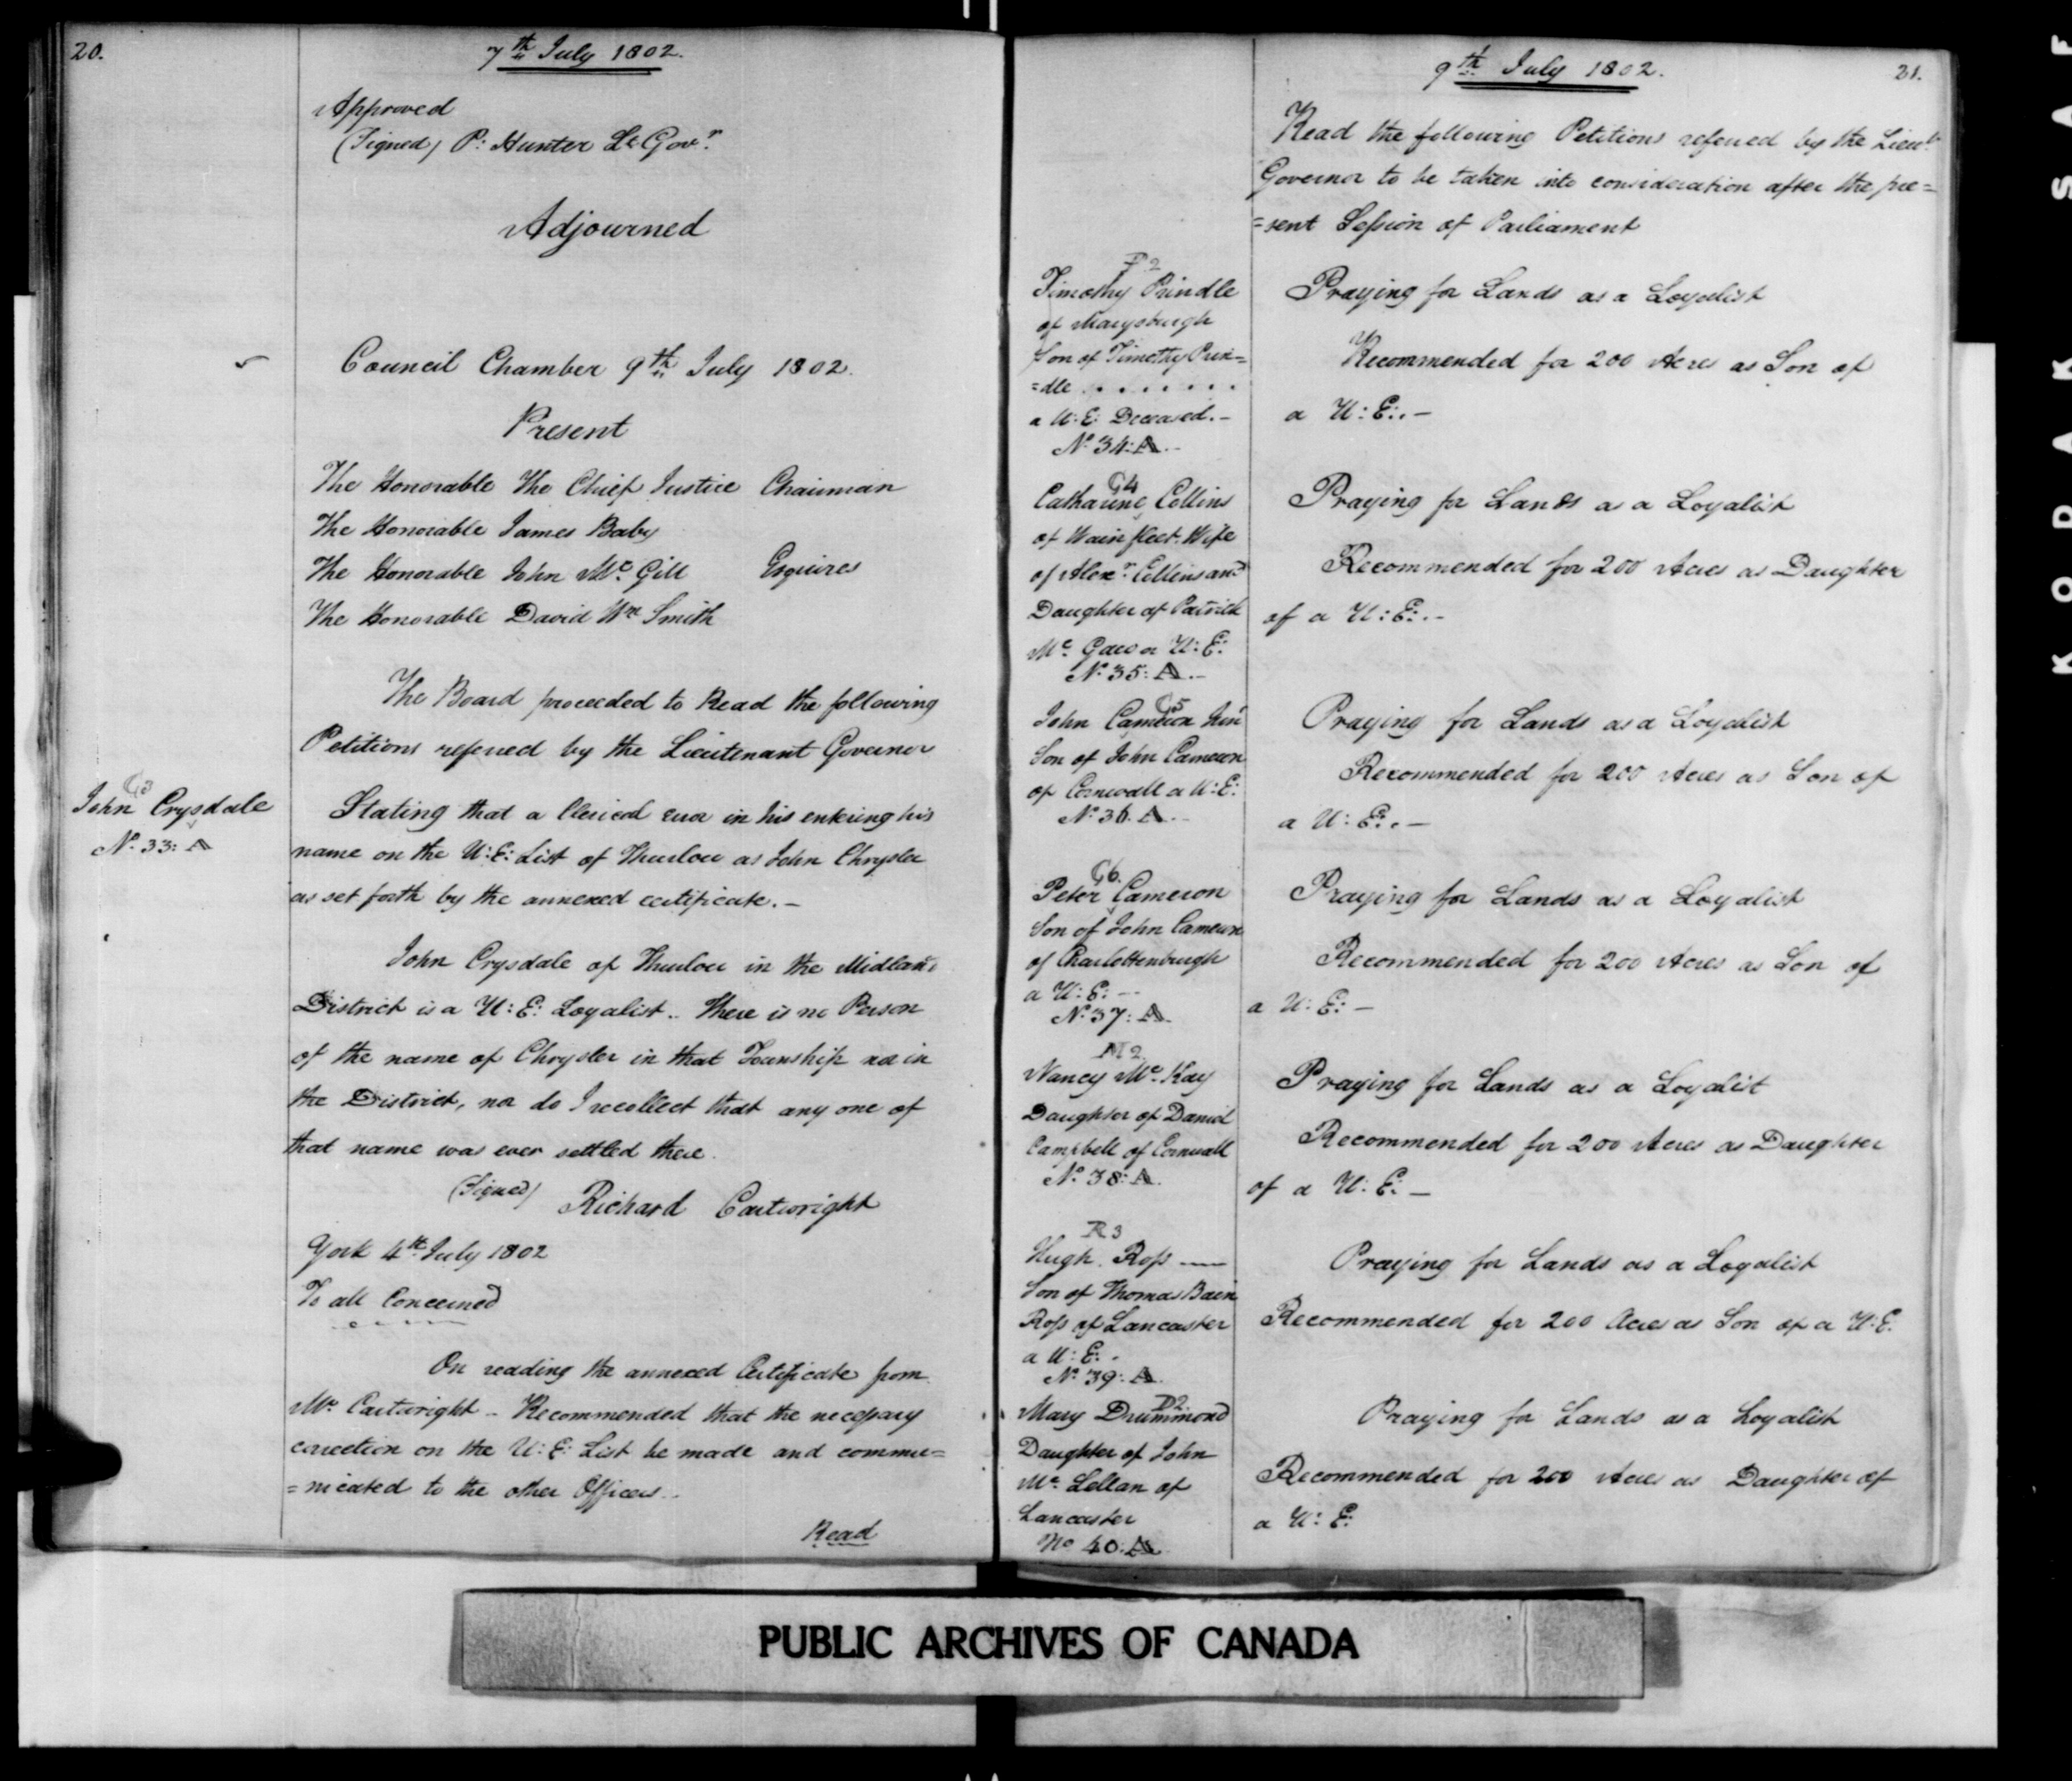 20.
7th July 1802.
Approved
(Signed) P: Hunter Lt Govr.
Adjourned
Council Chamber 9th July 1802.
Present
The Honorable The Chief Justice Chairman
The Honorable James Baby
The Honorable John Mc. Gill Esquires
The Honorable David Wm Smith
The Board proceeded to Read the following
Petitions referred by the Lieutenant Governor
C3
John Crysdale
No. 33: A
Stating that a Clerical error in his entering his
name on the U:E: List of Thurlow as John Chrysler
as set forth by the annexed certificate. –
John Crysdale of Thurlow in the Midland
District is a U:E: Loyalist.. There is no Person
of the name of Chrysler in that Township nor in
the District, nor do I recollect that any one of
that name was ever settled there.
(Signed) Richard Cartwright
York 4th July 1802
To all Concerned
On reading the annexed Certificate from
Mr. Cartwright – Recommended that the necessary
correction on the U:E: List be made and commu=
=nicated to the other Officers..
Read
9th July 1802.
21.
Read the following Petitions referred by the Lieut.
Governor to be taken into consideration after the pre=
=sent Session of Parliament
P2
Timothy Prindle
of Marysburgh
Son of Timothy Prin=
=dle . . . . . . .
a U:E: Deceased. –
No. 34: A. –
Praying for Lands as a Loyalist
Recommended for 200 Acres as Son of
a U:E:. –
C4
Catharine Collins
of Wainfleet. Wife
of Alexr. Collins and
Daughter of Patrick
Mc. Gaw a U:E:
No. 35: A. –
Praying for Lands as a Loyalist
Recommended for 200 Acres as Daughter
of a U:E:. –
C5
John Cameron Junr
Son of John Cameron
of Cornwall a U:E:
No. 36. A. –
Praying for Lands as a Loyalist
Recommended for 200 Acres as Son of
a U:E:. –
C6.
Peter Cameron
Son of John Cameron
of Charlottenburgh
a U:E: –
No. 37: A.
Praying for Lands as a Loyalist
Recommended for 200 Acres as Son of
a U:E: –
M2
Nancy Mc. Kay
Daughter of Daniel
Campbell of Cornwall
No. 38: A.
Praying for Lands as a Loyalist
Recommended for 200 Acres as Daughter
of a U:E: –
R3
Hugh Ross —
Son of Thomas Bain
Ross of Lancaster
a U:E: .
No. 39: A.
Praying for Lands as a Loyalist
Recommended for 200 Acres as Son of a U:E.
D2
Mary Drummond
Daughter of John
Mc. Lellan of
Lancaster
No 40: A
Praying for Lands as a Loyalist
Recommended for 200 Acres as Daughter of
a U:E:
PUBLIC ARCHIVES OF CANADA
KODAK SAF